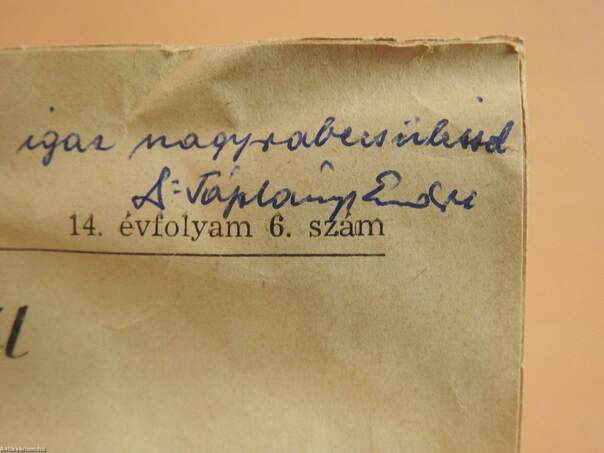 igaz nagyrabecsüléssel
Dr Táplányi Endre
14. évfolyam 6. szám
u
Antikvarium.hu